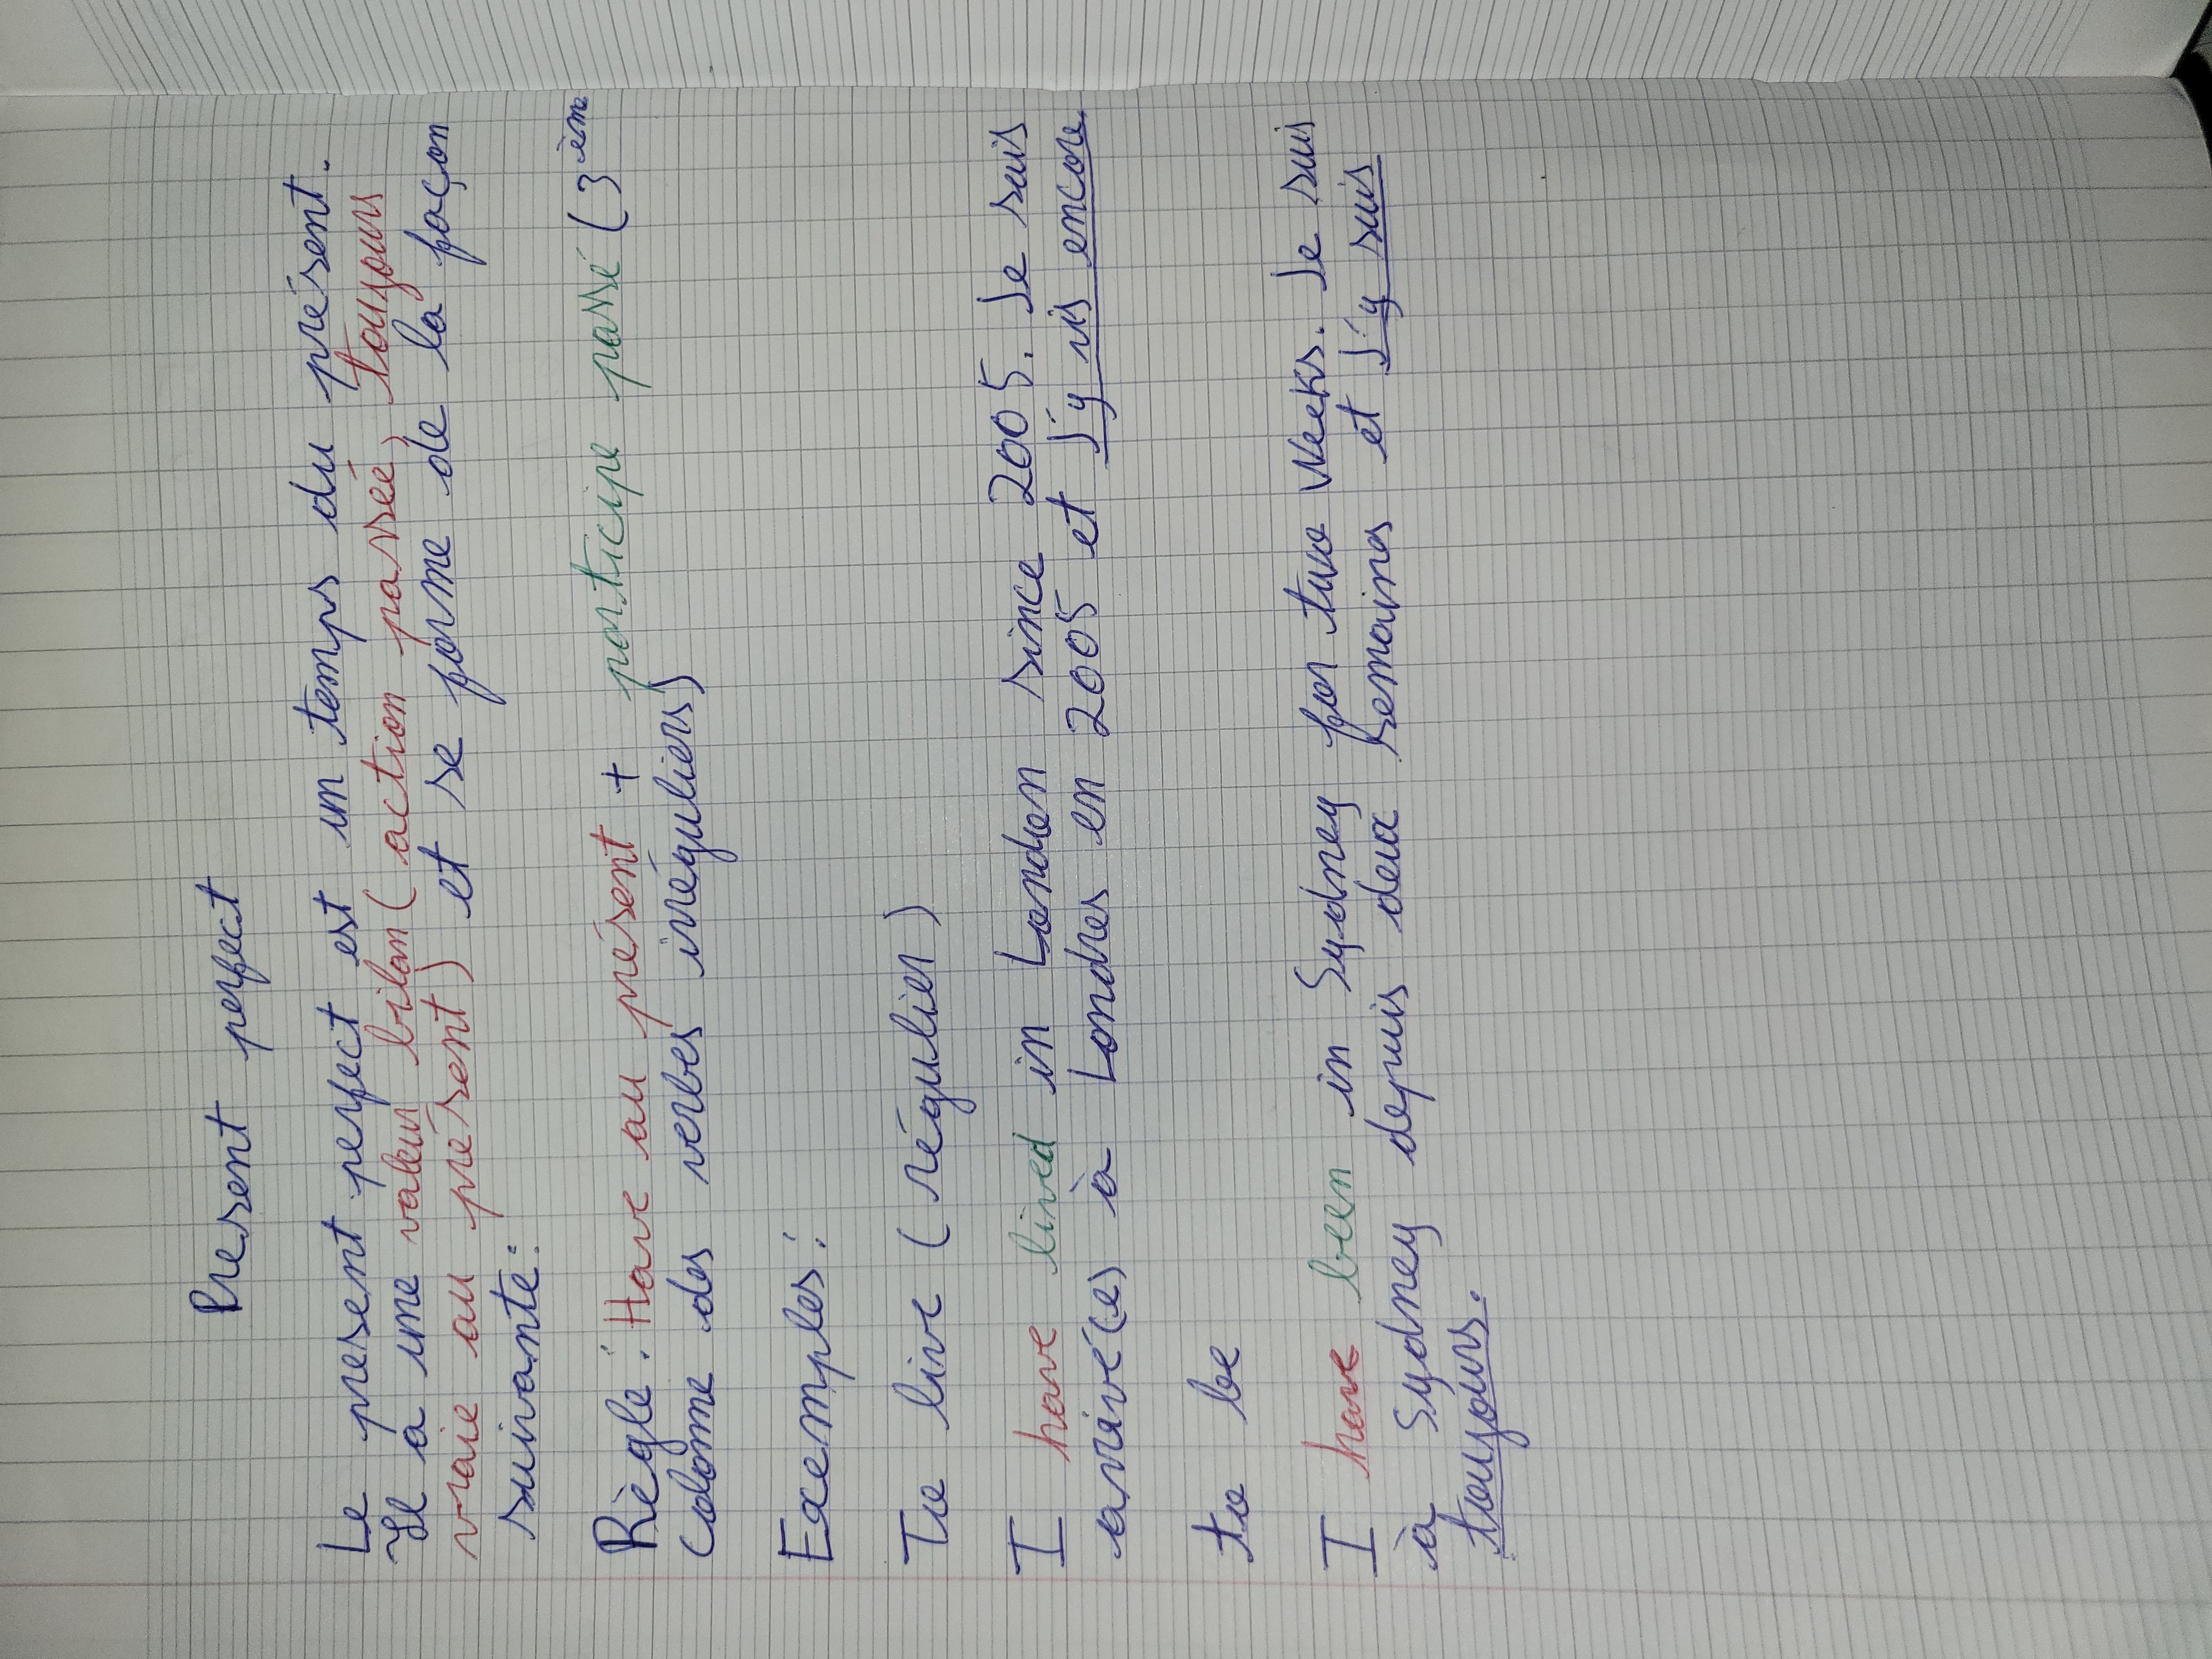 Present perfect
Le present perfect est un temps du présent.
Il a une valeur bilan (action passée, toujours
vraie au présent) et se forme de la façon
suivante :
Règle : Have au présent + participe passé (3 ème
colonne des verbes irréguliers)
Exemples :
To live (régulier)
I have lived in London since 2005. Je suis
arrivé(e) à Londres en 2005 et j'y vis encore
to be
I have been in Sydney for two weeks. Je suis
à Sydney depuis deux semaines et j'y suis
toujours.